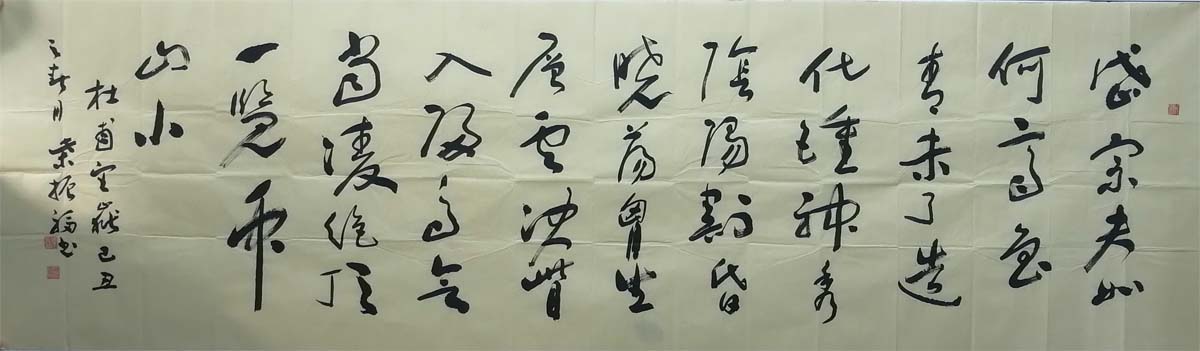 岱宗夫如
何齊魯
青未了造
化鍾神秀
陰陽割昏
曉蕩胷生
層雲決眥
入歸鳥會
當凌絕頂
一覽眾
山小
杜甫望嶽己丑
之春月 振福书